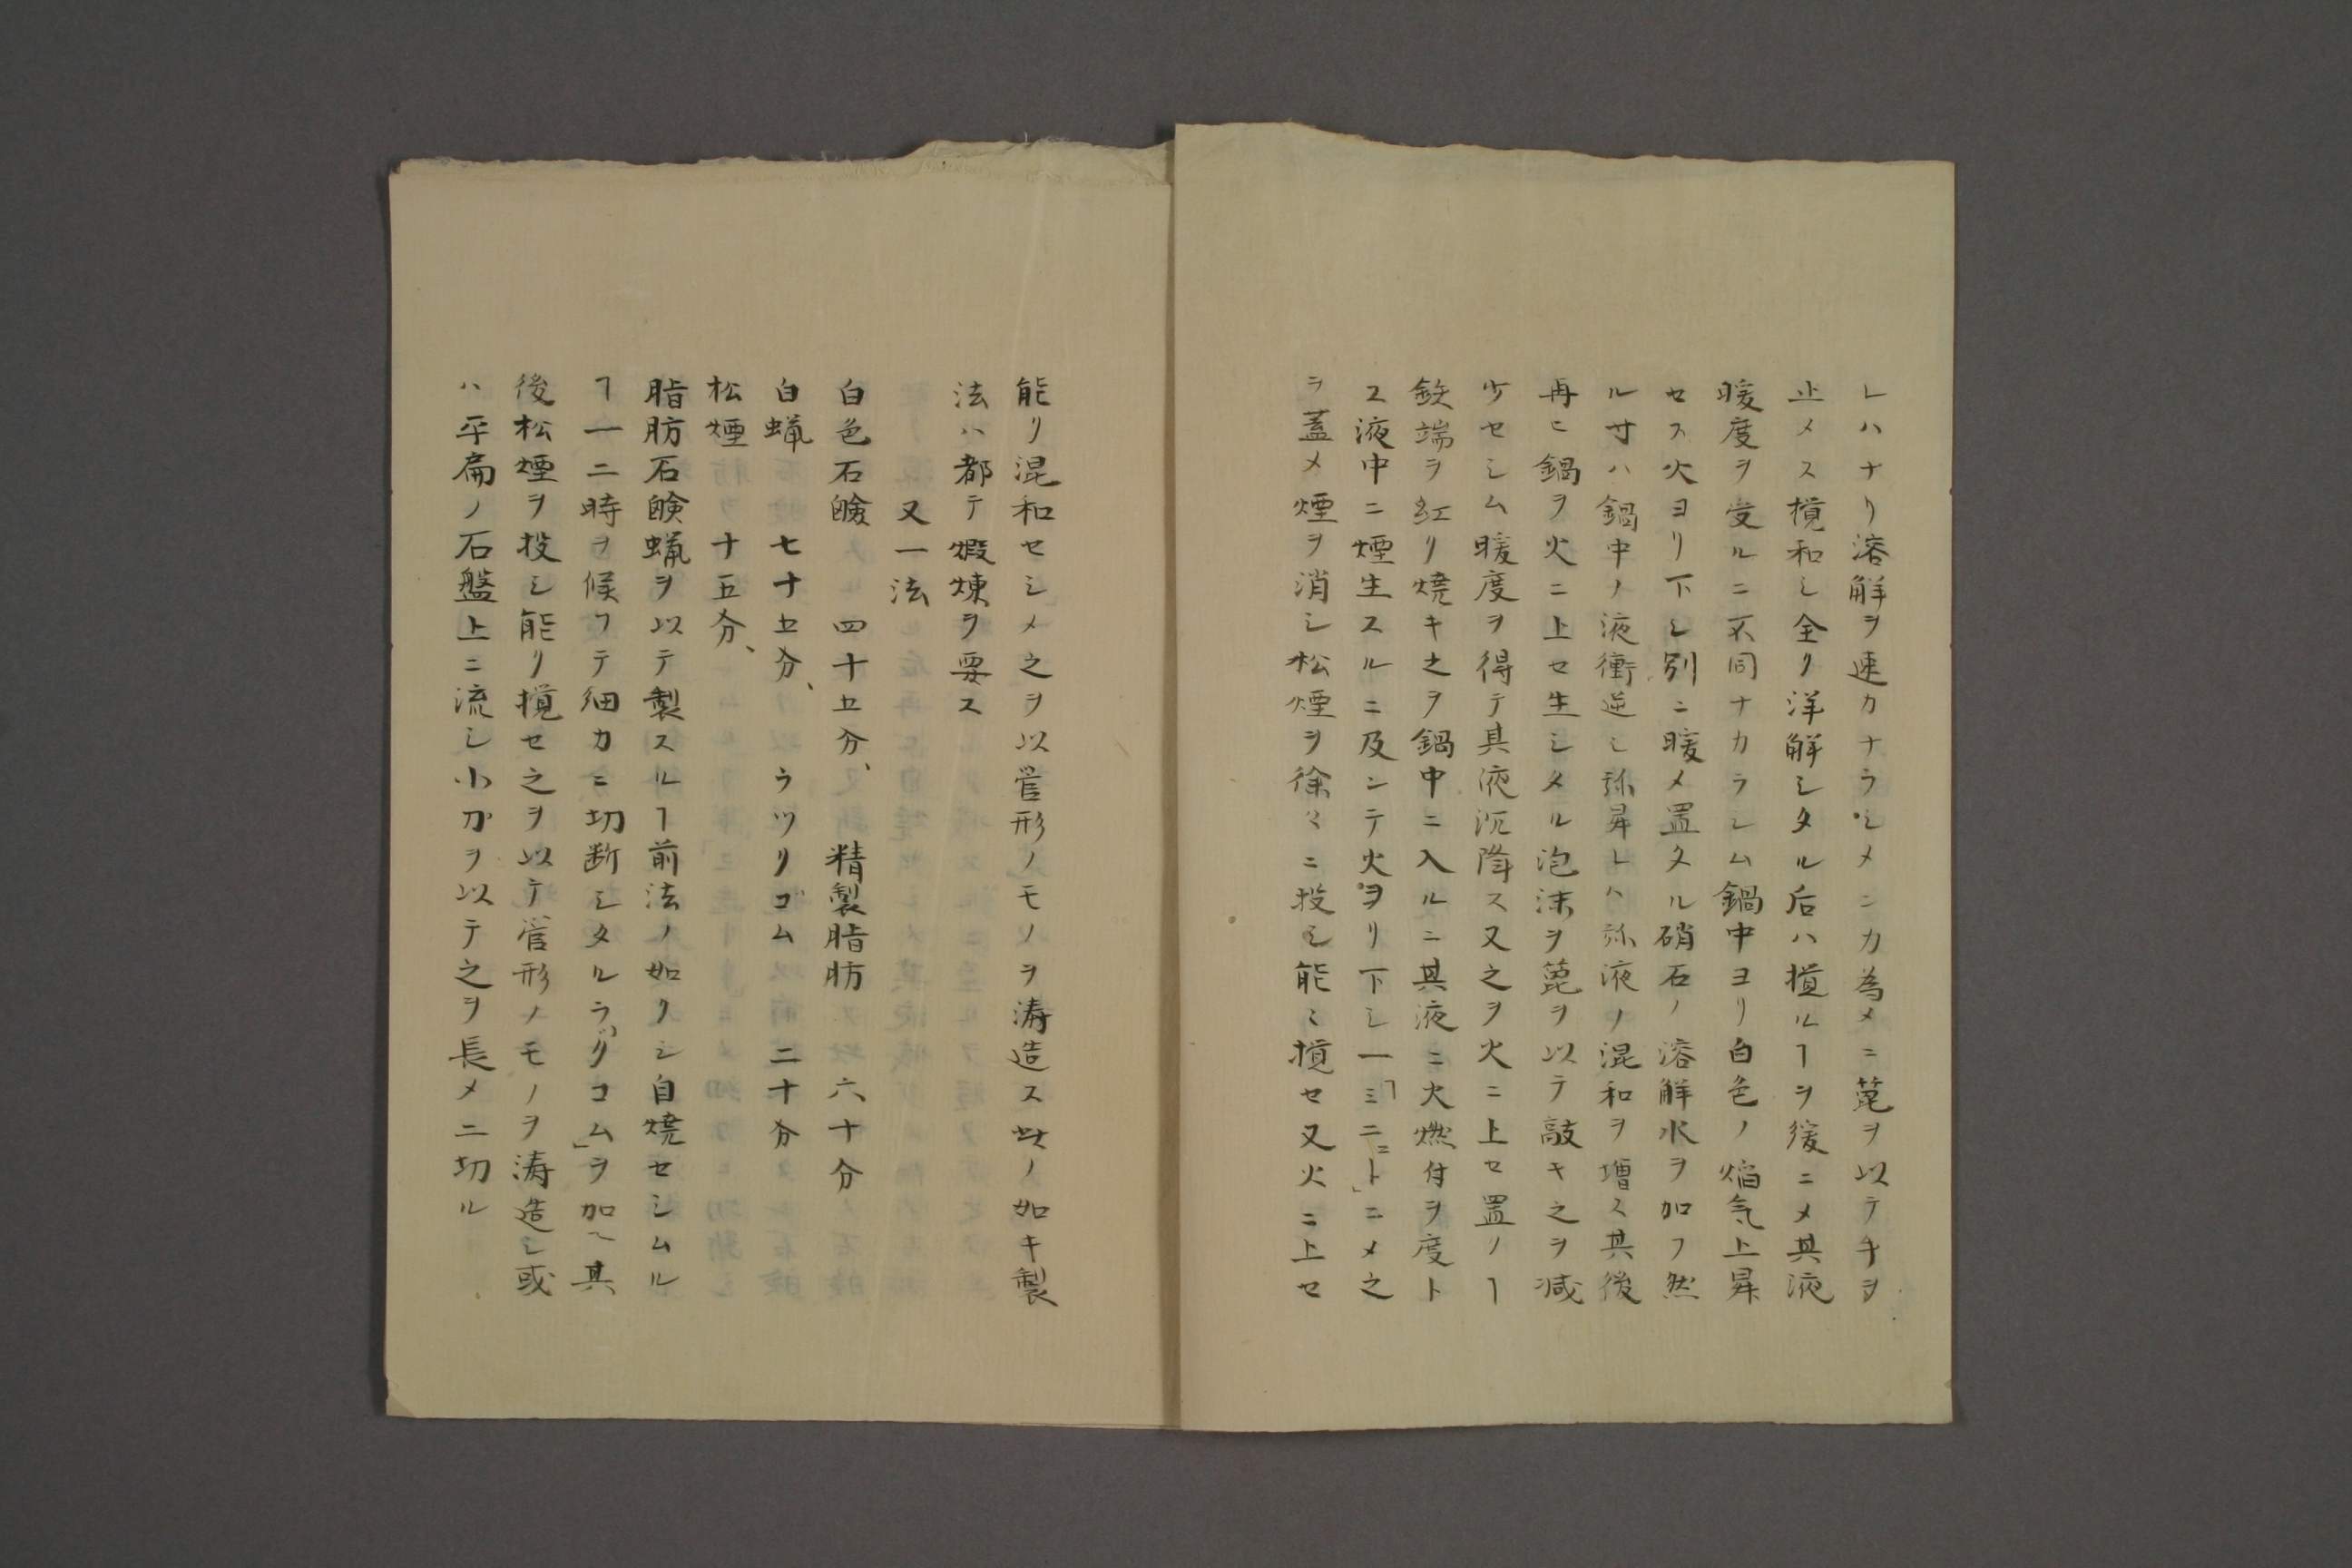 レハナリ溶解ヲ速カナラシメンカ為メニ箆ヲ以テキヲ
止メス攪和シ全ク洋解シタル后ハ攪ルヿヲ緩ニメ其液
暖度ヲ受ルニ不同ナカラシム鍋中ヨリ白色ノ焔気上昇
セス火ヨリ下シ別ニ暖メ置タル硝石ノ溶解水ヲ加フ然
ル寸ハ鍋中ノ液衝逆シ弥昇レハ弥液ノ混和ヲ増ス其後
再ヒ鍋ヲ火ニ上セ生シタル泡沫ヲ箆ヲ以テ敲キ之ヲ減
少セシム暖度ヲ得テ其液沉降ス又之ヲ火ニ上セ置ノヿ
鉄端ヲ紅リ焼キ之ヲ鍋中ニ入ルニ其液ニ火燃付ヲ度ト
ス液中ニ煙生スルニ及ンテ火ヲリ下シ一「ミニート」ニメ之
ラ蓋メ煙ヲ消シ松煙ヲ徐々ニ投シ能ミ攪セ又火ニ上セ
能リ混和セシメ之ヲ以管形ノモノヲ濤造ス此ノ如キ製
法ハ都テ煅煉ヲ要ス
又一法
白色石鹸 四十五分、 精製脂肪 六十分
白蝋 七十五分、 ラツリゴム 二十分
松煙 十五分、
脂肪石鹸蝋ヲ以テ製スルヿ前法ノ如クシ自焼セシムル
ヿ一二時ヲ候フテ細カニ切断シタルラ「リコム」ヲ加ヘ其
後松煙ヲ投シ能リ攪セ之ヲ以テ管形ノモノヲ濤造シ或
ハ平扁ノ石盤上ニ流シ小刀ヲ以テ之ヲ長メニ切ル